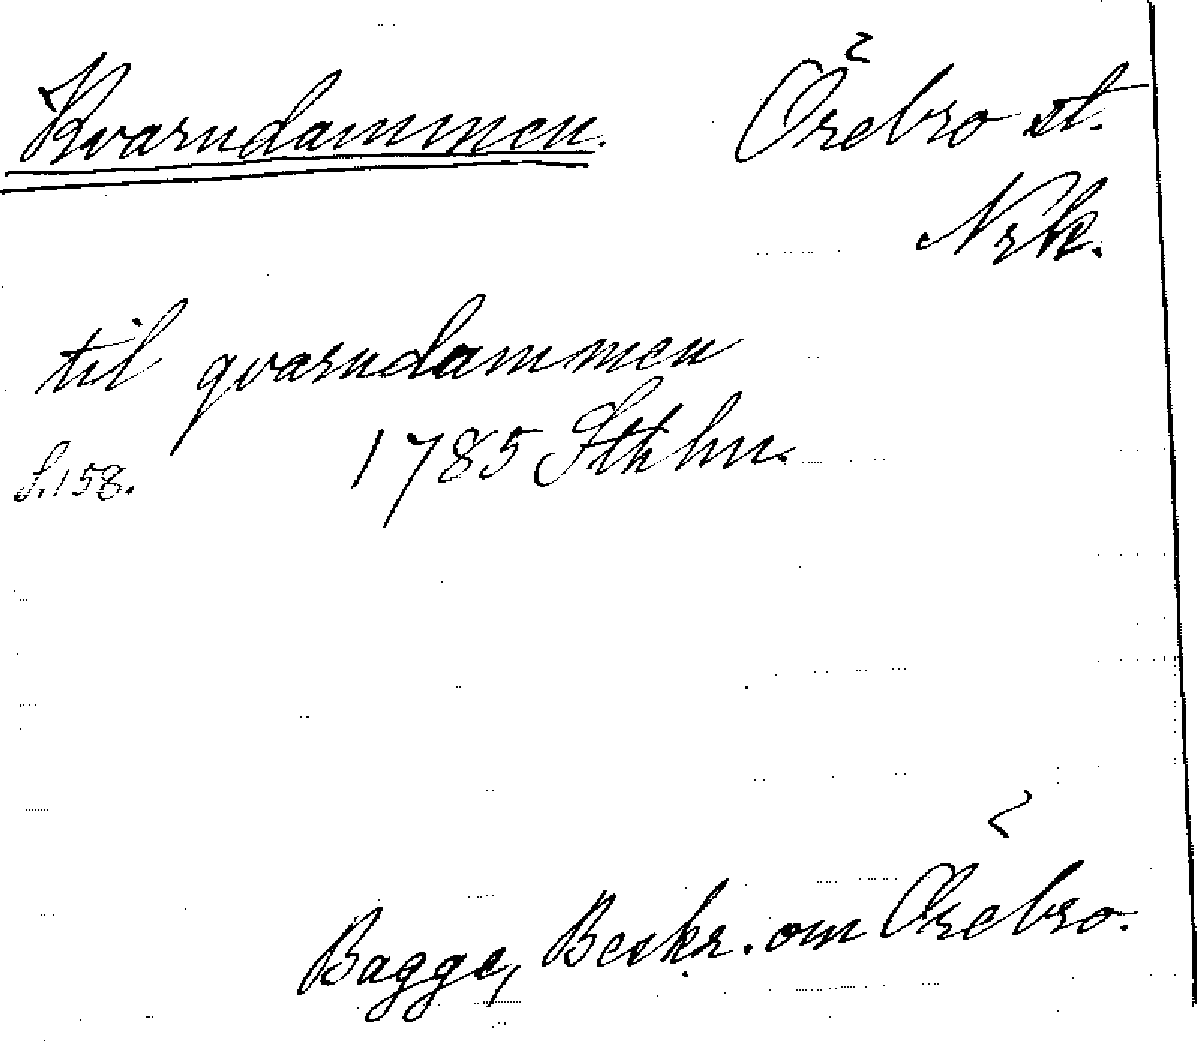 Kvarndammen. Örebro st.
Nrk.
til qvarndammen
S. 158. 1785 Sthlm.
Bagge, Beskr. om Örebro.